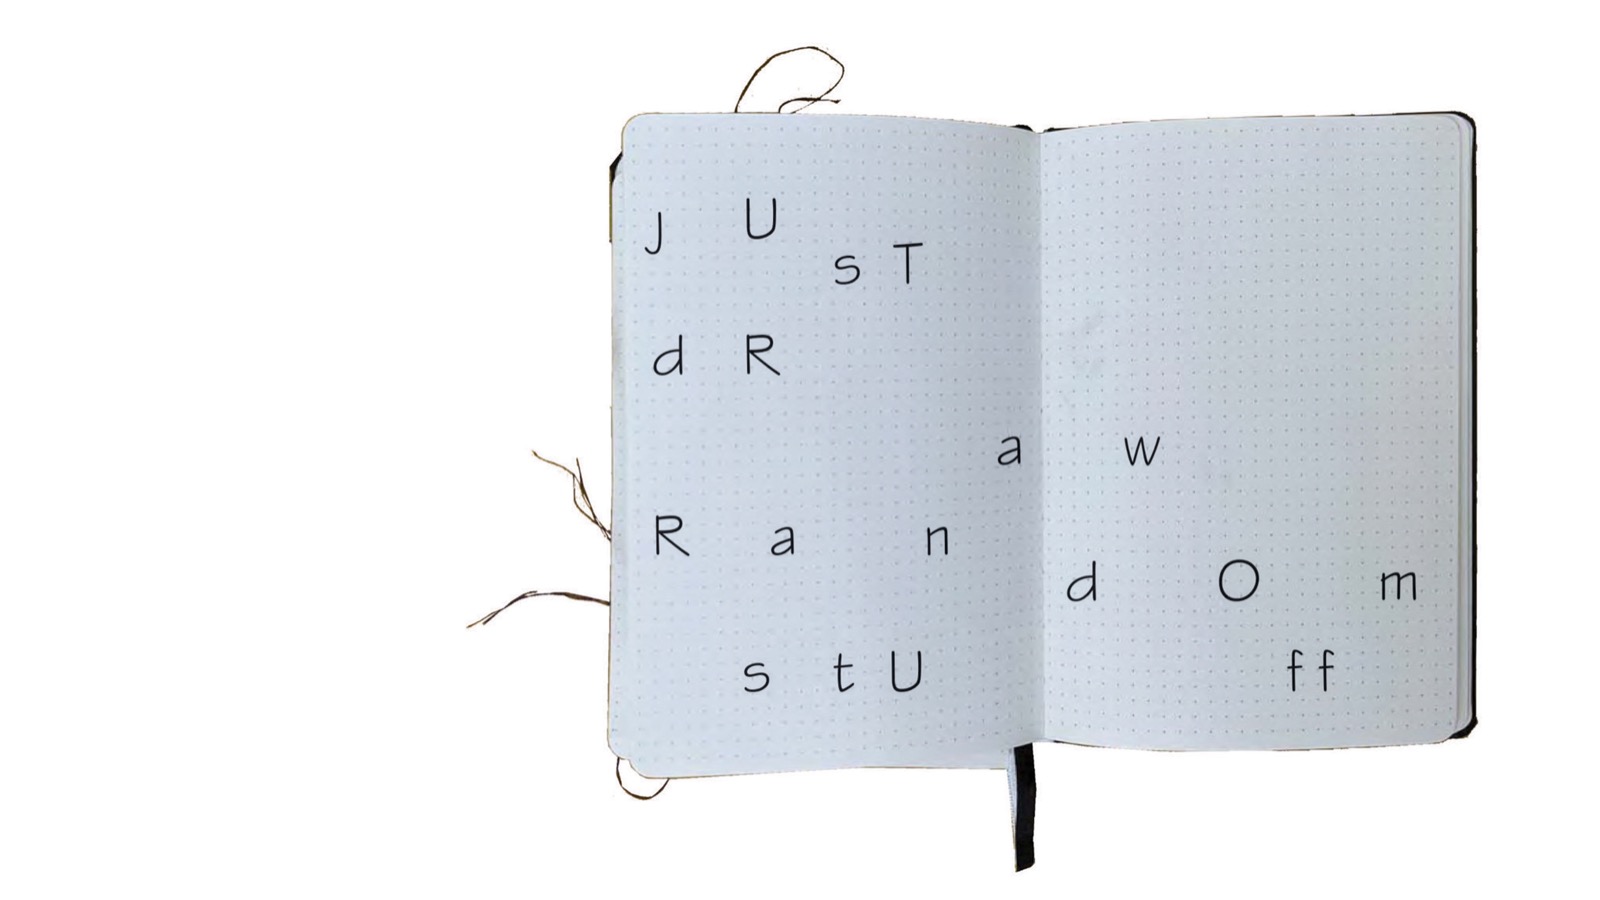 J U s T
d R a w
R a n d O m
s t U f f